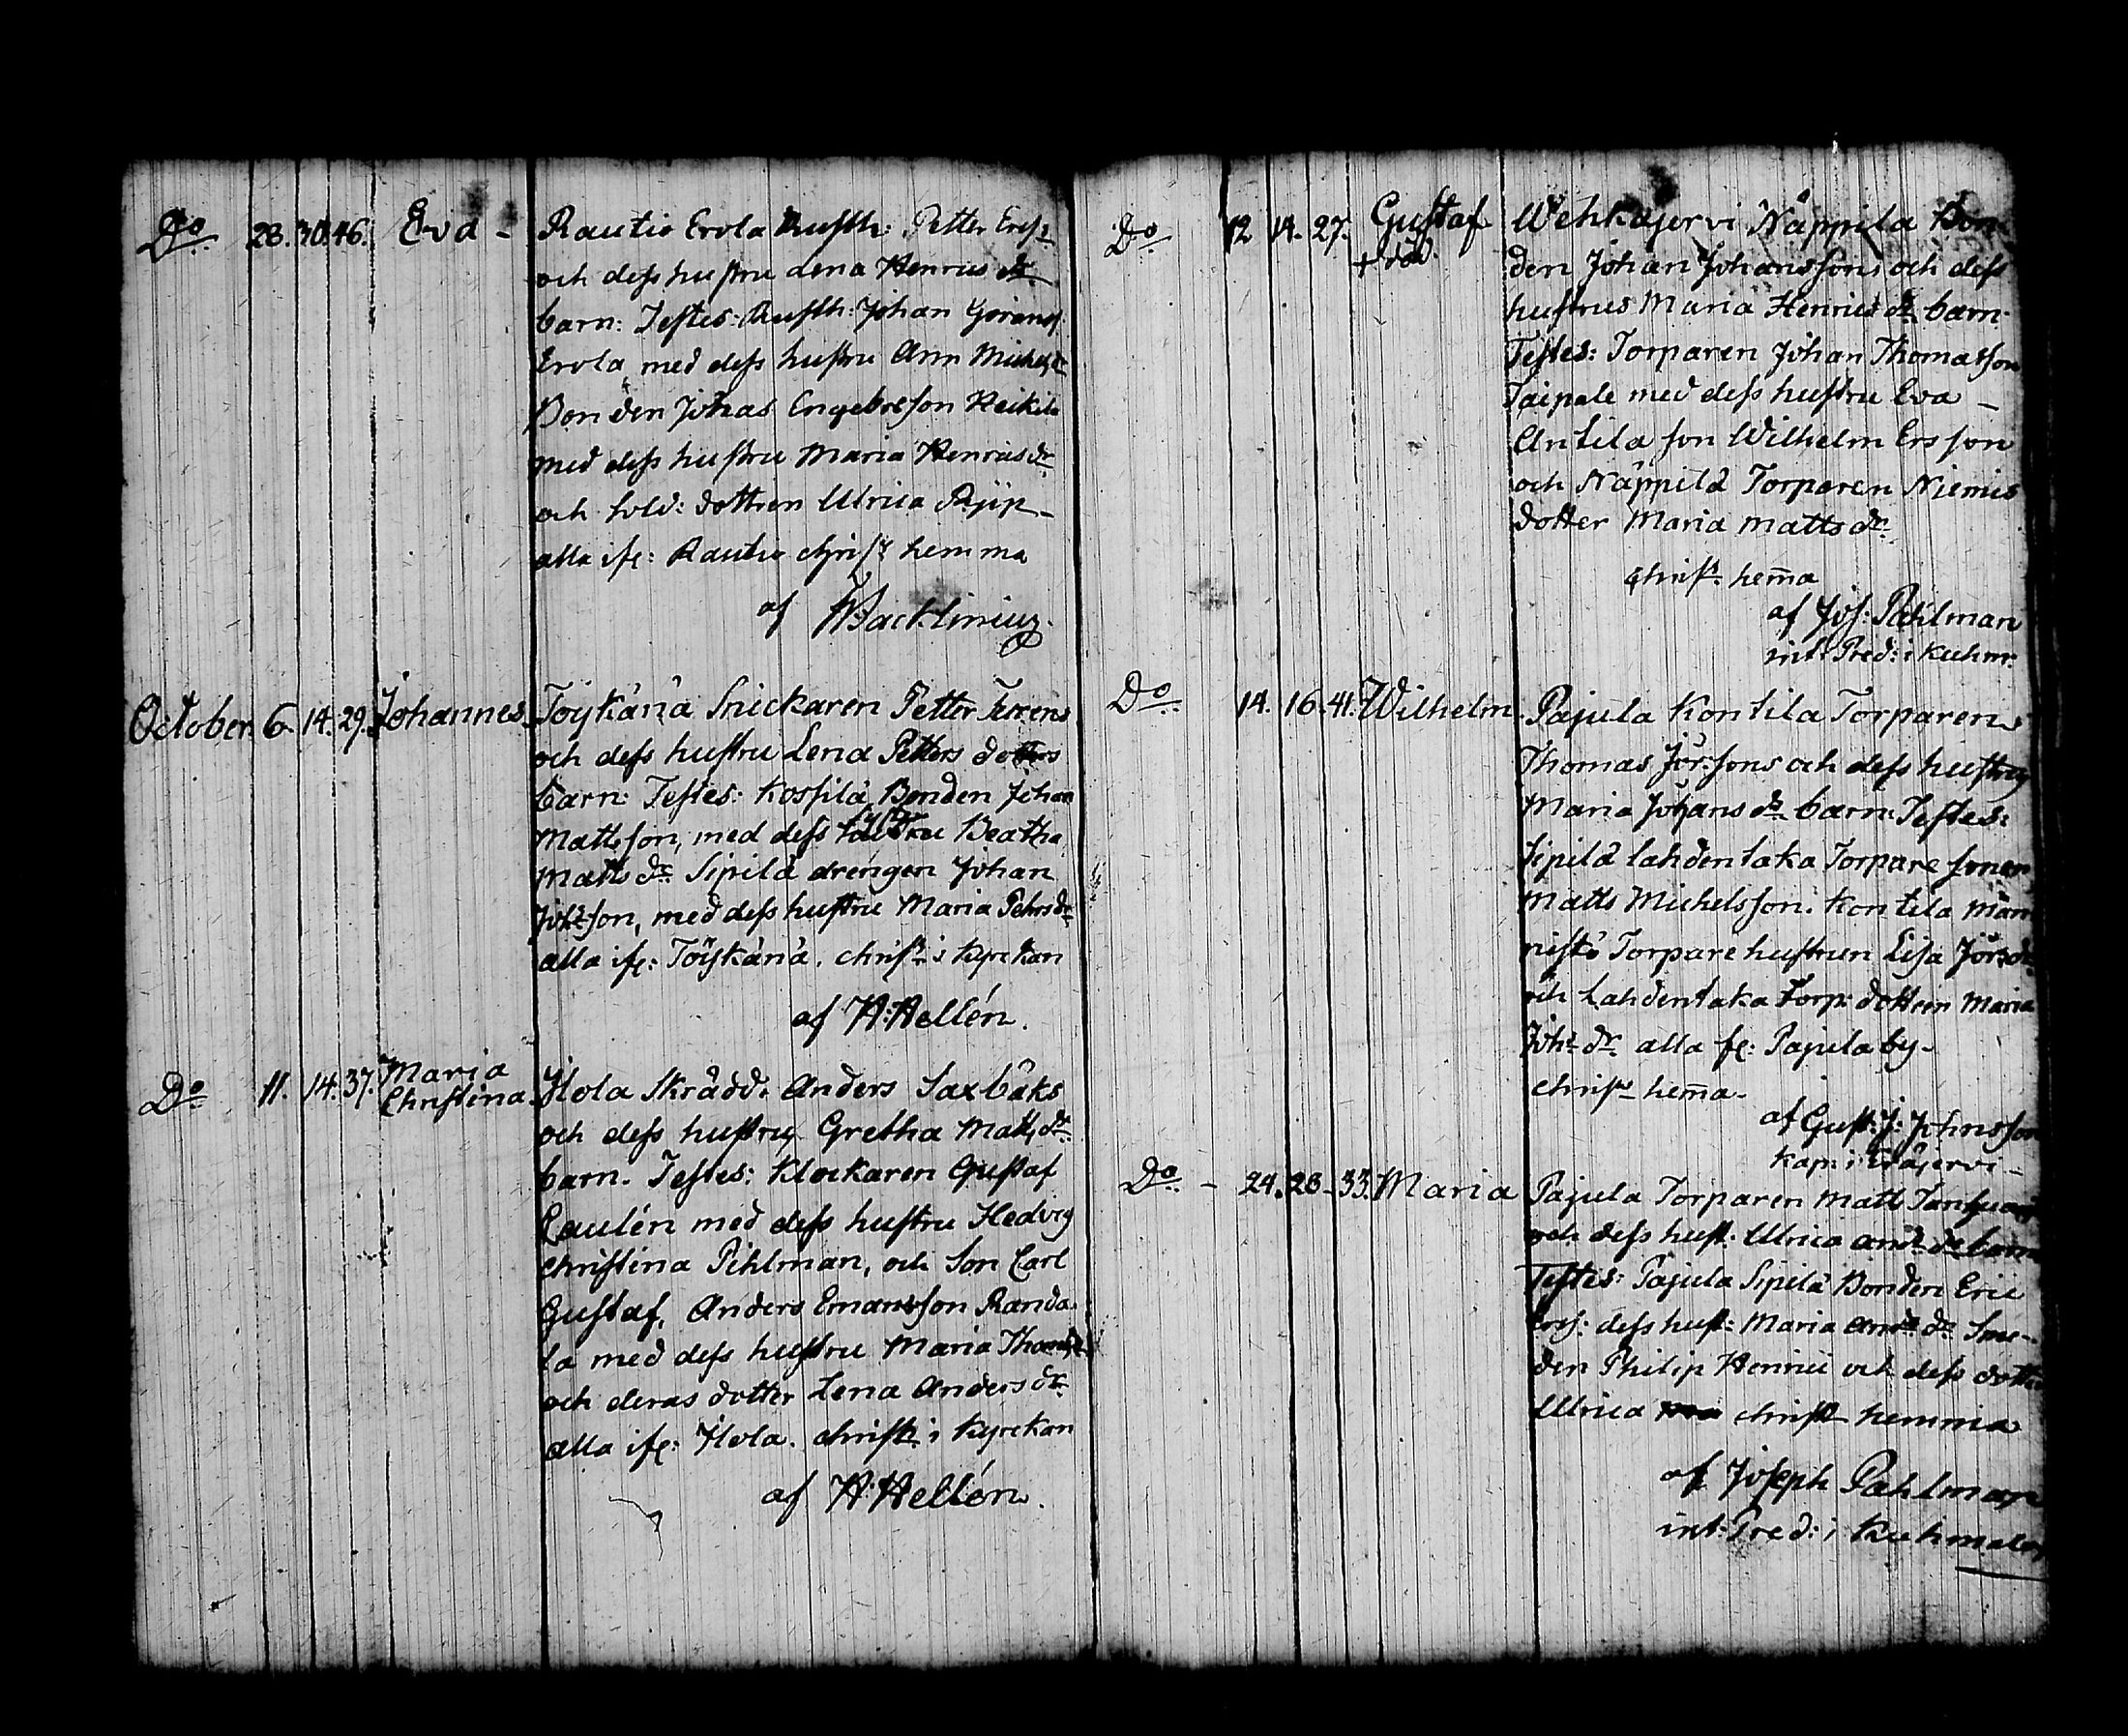 Do 28. 30. 46. Eva - Rautio Erola Rusth: Petter Ersz
och dess hustru Lena Henricsdr
barn: Testes: Rusth: Johan Görans
Erola, med dess hustru Ann Michelsdr
Bonden Johas Engebreson Keikila
med dess hustru Maria Henricsdr
och dottren Ulrica
alla ifr: Rautio christ hemma
af Backliniuz.
October 6. 14. 29. Johannes Töykänä Snickaren Petter
och dess hustru Lena Petters dotters
barn: Testes: Kossilä Bonden Johan
Mattsson, med dess syster Beatha
Matts dr Sipilä drengen Johan
Johsson, med dess hustru Maria Pehrsdr
alla ifr: Töijkänä. christ i Kyrckan
af H: Hellén.
Do 11. 14. 37. Maria
Christina. Ylola Skrädd: Anders Saxbäks
och dess hustru Gretha Matts dr
barn. Testes: Klockaren Gustaf
Laulén med dess hustru Hedvig
Christina Pihlman, och Son Carl
Gustaf, Anders Emanson Randa-
la med dess hustru Maria Thomsdr
och deras dotter Lena Anders dr
alla ifr: Ylola. christ i Kyrckan
af H: Hellén.
Do 12 14. 27. Gustaf Wehkajervi Näppilä Bon
+ död. den Johan Johanssons och dess
hustrus Maria Henrics dr barn.
Testes: Torparen Johan Thomasson
Taipale med dess hustru Eva -
Antila son Wilhelm Ersson
och Näppilä Torparen Niemis
dotter Maria Matts dr
christ. hem̄a
af Jos: Pahlman
int: Pred: i Kuhm:
Do 14. 16. 41. Wilhelm. Pajula Kontila Torparens
Thomas Jörssons och dess hustrus
Maria Johans dr barn: Testes:
Sipilä Lahdentaka Torpare sonen
Matts Michelsson. Kontila Män
nistö Torpare hustrun Lisa Jörsdr
och Lahdentaka Torp: dottren Maria
Johs dr alla fr: Pajula by.
christ hem̄a.
af Gust: J: Johnsson
Kap: i Eräjervi -
Do - 24. 28. 33. Maria Pajula Torparen Matts
och dess hust. Ulrica And: dr barn
Testes: Pajula Sipilä Bonden Eric
Ers: dess hust: Maria And: dr Sme-
den Philip Henrici och dess dotter
Ulrica christ hemma
af Joseph Pahlman
int: Pred: i Kuhmalax